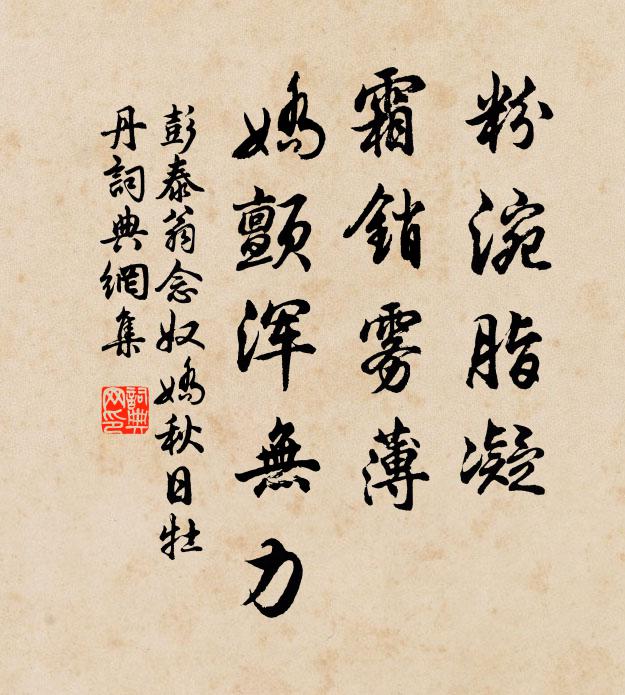 粉涴脂凝
霜銷雾薄
嬌顫浑無力
彭泰翁念奴嬌秋日牡
丹詞典網集
詞典
网印